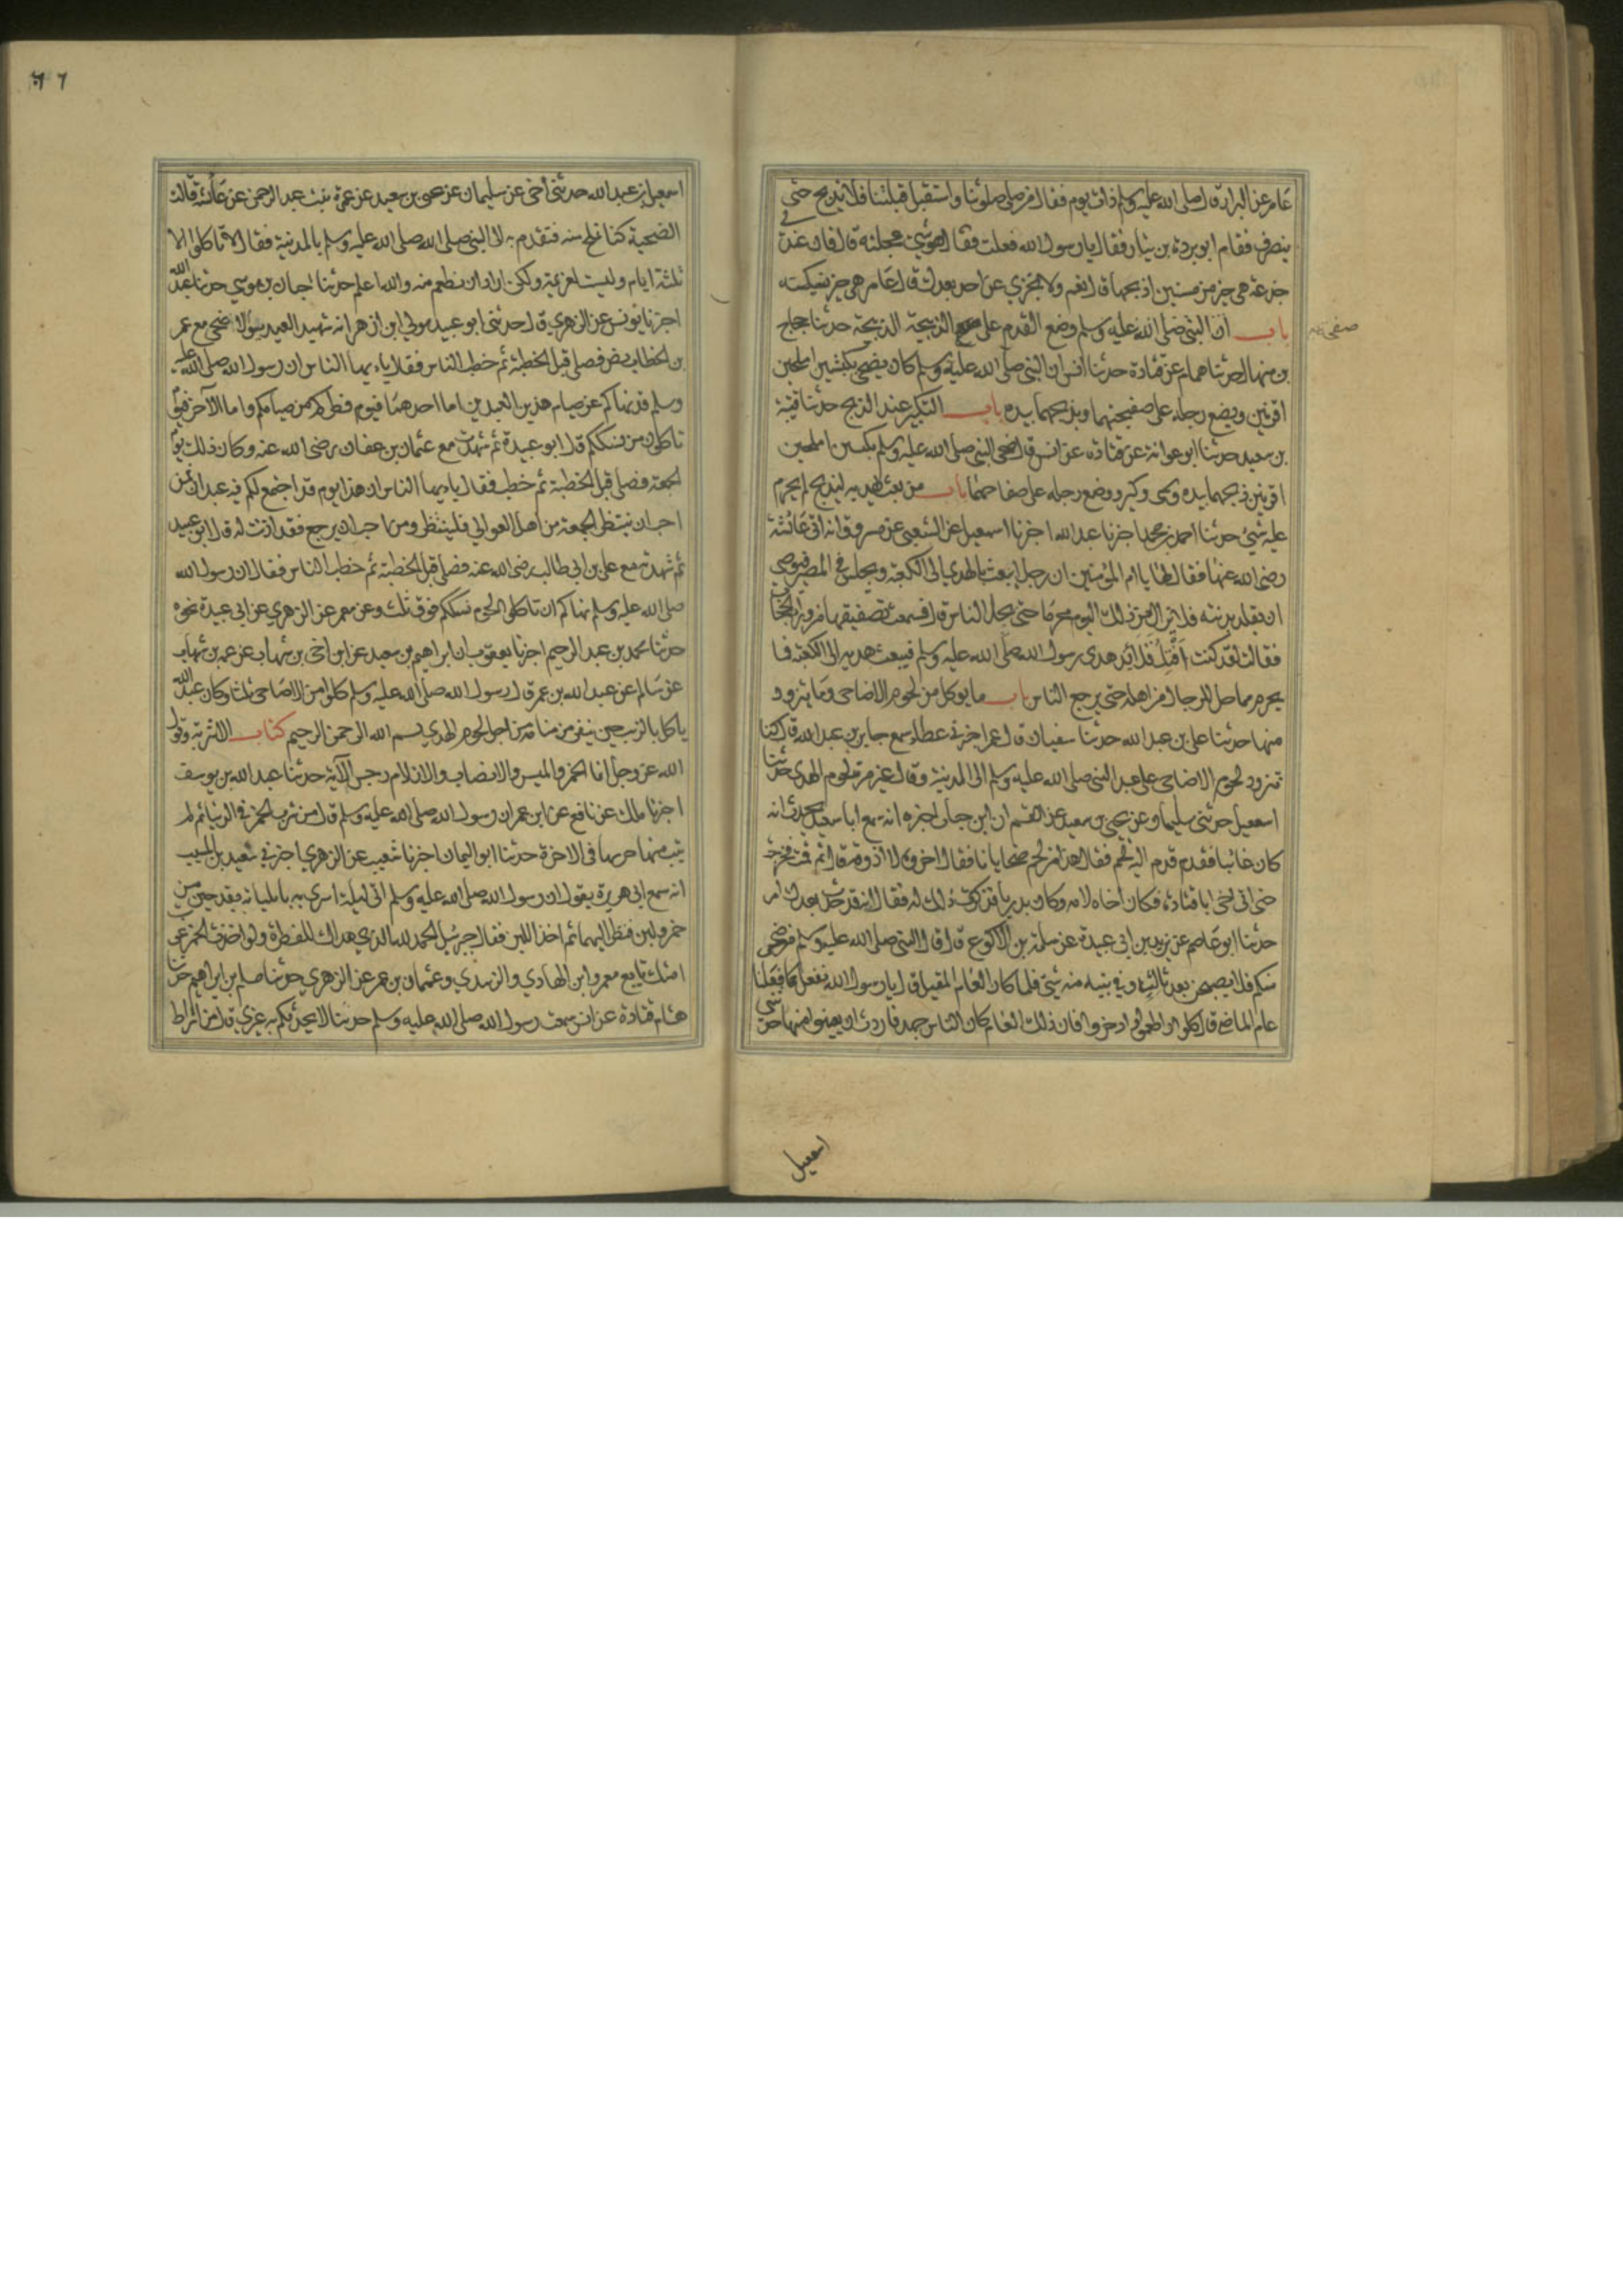 عامر عن البراء قال صلى الله عليه وسلم ذات يوم فقال من صلى صلوتنا واستقبل قبلتنا فلا يذبح حتى
ينصرف فقام ابو بردة بن نيار فقال يا رسول الله فعلت فقال هو شيء عجلته قال فان عندي
جذعة هي خير من مسنين اذبحها قال نعم ولا تجزي عن احد بعدك قال عامر هي خير نسيكته
باب ان النبي صلى الله عليه وسلم وضع القدم على الذبيحة حدثنا حجاج
صفحة
بن منهال حدثنا همام عن قتادة حدثنا انس ان النبي صلى الله عليه وسلم كان يضحي بكبشين املحين
اقرنين ويضع رجله على صفحتهما ويذبحهما بيده باب التكبير عند الذبح حدثنا قتيبة
بن سعيد حدثنا ابو عوانة عن قتادة عن انس قال ضحى النبي صلى الله عليه وسلم بكبشين املحين
اقرنين ذبحهما بيده وسمى وكبر ووضع رجله على صفاحهما باب من بعث بهديه ليذبح لم يحرم
عليه شيء حدثنا احمد بن محمد اخبرنا عبد الله اخبرنا اسمعيل عن الشعبي عن مسروق انه اتى عائشة
رضي الله عنها فقال لها يا ام المؤمنين ان رجلا يبعث بالهدي الى الكعبة ويجلس في المصر فيوصي
ان يقلد بدنته فلا يزال من ذلك اليوم محرما حتى يحل الناس قال فسمعت تصفيقها من وراء الحجاب
فقالت لقد كنت افتل قلائد هدي رسول الله صلى الله عليه وسلم فيبعث هديه الى الكعبة فما
يحرم مما حل للرجال من اهله حتى يرجع الناس باب ما يوكل من لحوم الاضاحي وما يتزود
منها حدثنا علي بن عبد الله حدثنا سفيان قال عمرو اخبرني عطاء سمع جابر بن عبد الله قال كنا
نتزود لحوم الاضاحي على عهد النبي صلى الله عليه وسلم الى المدينة وقال غير مرة لحوم الهدي حدثنا
اسمعيل حدثني سليمان عن يحيى بن سعيد عن القسم ان ابن خباب اخبره انه سمع ابا سعيد يحدث انه
كان غائبا فقدم فقدم اليه لحم فقال هذا من لحم ضحايانا فقال اخروه لا اذوقه قال ثم قمت فخرجت
حتى اتى اخي ابا قتادة فكان اخاه لامه وكان بدريا فذكرت ذلك له فقال انه قد حدث بعدك امر
حدثنا ابو عاصم عن يزيد بن ابي عبيدة عن سلمة بن الاكوع قال قال النبي صلى الله عليه وسلم من ضحى
منكم فلا يصبحن بعد ثالثة وفي بيته منه شيء فلما كان العام المقبل قال يا رسول الله نفعل كما فعلنا
عام الماضي قال كلوا واطعموا وادخروا فان ذلك العام كان الناس جهد فاردت ان يعينوا منها حدثني
اسمعيل
٦٦
اسمعيل بن عبد الله حدثني اخي عن سليمان عن يحيى بن سعيد عن عمرة بنت عبد الرحمن عن عائشة قالت
الضحية كنا نملح منه فنقدم به الى النبي صلى الله عليه وسلم بالمدينة فقال لا تاكلوا الا
ثلثة ايام وليست بعزيمة ولكن اراد ان نطعم منه والله اعلم حدثنا حبان بن موسى حدثنا عبد الله
اخبرنا يونس عن الزهري قال حدثني ابو عبيد مولى ابن ازهر انه شهد العيد يوم الاضحى مع عمر
بن الخطاب رض فصلى قبل الخطبة ثم خطب الناس فقال يا ايها الناس ان رسول الله صلى الله عليه
وسلم قد نهاكم عن صيام هذين العيدين اما احدهما فيوم فطركم من صيامكم واما الاخر فيوم
تاكلون من نسككم قال ابو عبيدة ثم شهدت مع عثمان بن عفان رضي الله عنه وكان ذلك يوم
الجمعة فصلى قبل الخطبة ثم خطب فقال يا ايها الناس ان هذا يوم قد اجتمع لكم فيه عيدان فمن
احب ان ينتظر الجمعة من اهل العوالي فلينتظر ومن احب ان يرجع فقد اذنت له قال ابو عبيد
ثم شهدته مع علي بن ابي طالب رضي الله عنه فصلى قبل الخطبة ثم خطب الناس فقال ان رسول الله
صلى الله عليه وسلم نهاكم ان تاكلوا لحوم نسككم فوق ثلث وعن معمر عن الزهري عن ابي عبيدة نحوه
حدثنا محمد بن عبد الرحيم اخبرنا يعقوب بن ابراهيم بن سعيد عن ابن اخي بن شهاب عن عمه بن شهاب
عن سالم عن عبد الله بن عمر قال رسول الله صلى الله عليه وسلم كلوا من الاضاحي ثلثا وكان عبد الله
ياكل بالزيت حين ينفر من منا من اجل لحوم الهدي بسم الله الرحمن الرحيم كتاب الاشربة وقول
الله عز وجل انما الخمر والميسر والانصاب والازلام رجس الآية حدثنا عبد الله بن يوسف
اخبرنا مالك عن نافع عن ابن عمر ان رسول الله صلى الله عليه وسلم قال من شرب الخمر في الدنيا ثم لم
يتب منها حرمها في الاخرة حدثنا ابو اليمان اخبرنا شعيب عن الزهري اخبرني سعيد بن المسيب
انه سمع ابي هريرة يقول ان رسول الله صلى الله عليه وسلم اتي ليلة اسري به بايليا بقدحين من
خمر ولبن فنظر اليهما ثم اخذ اللبن فقال جبرئيل الحمد لله الذي هداك للفطرة ولو اخذت الخمر غوت
امتك تابعه معمر وابن الهادي والزبيدي وعثمان بن عمر عن الزهري حدثنا مسلم بن ابراهيم حدثنا
هشام قتادة عن انس سمعت رسول الله صلى الله عليه وسلم حديثا لا يحدثكم به غيري قال من اشراط